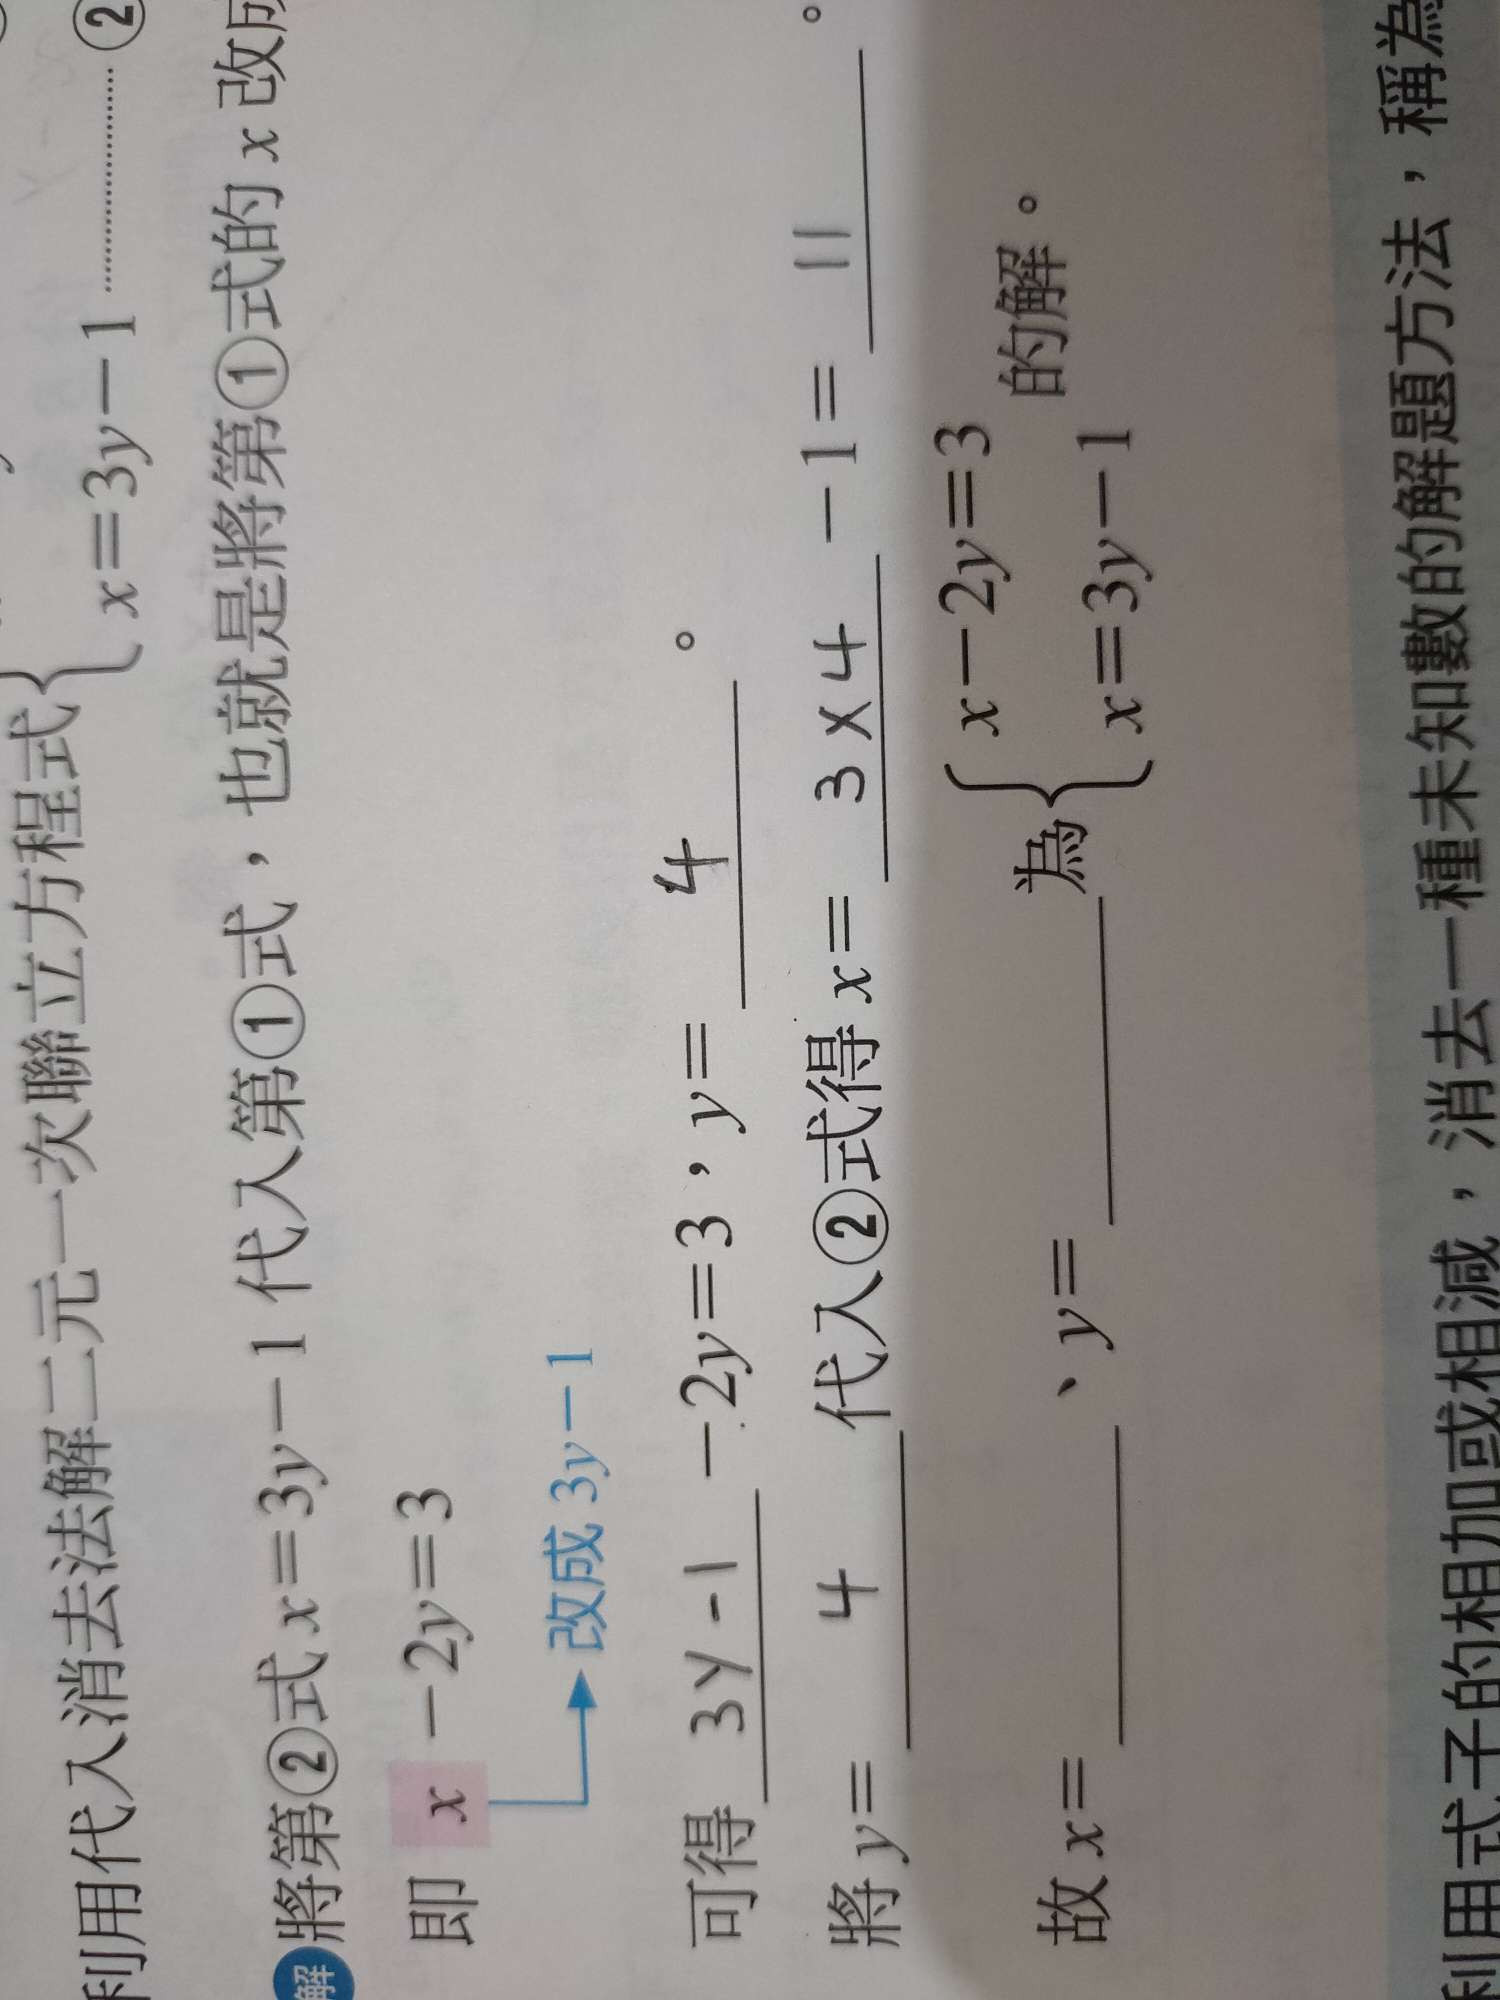 ②
利用代入消去法解二元一次聯立方程式{ x=3y-1 ……………②
解 將第②式 x=3y-1 代入第①式，也就是將第①式的 x 改成
即 x -2y=3
改成 3y-1
可得 3y-1 -2y=3，y= 4 。
將 y= 4 代入②式得 x= 3×4 -1= 11 。
故 x= ____ 、y= ____ 為{ x-2y=3
x=3y-1 的解。
利用式子的相加或相減，消去一種未知數的解題方法，稱為